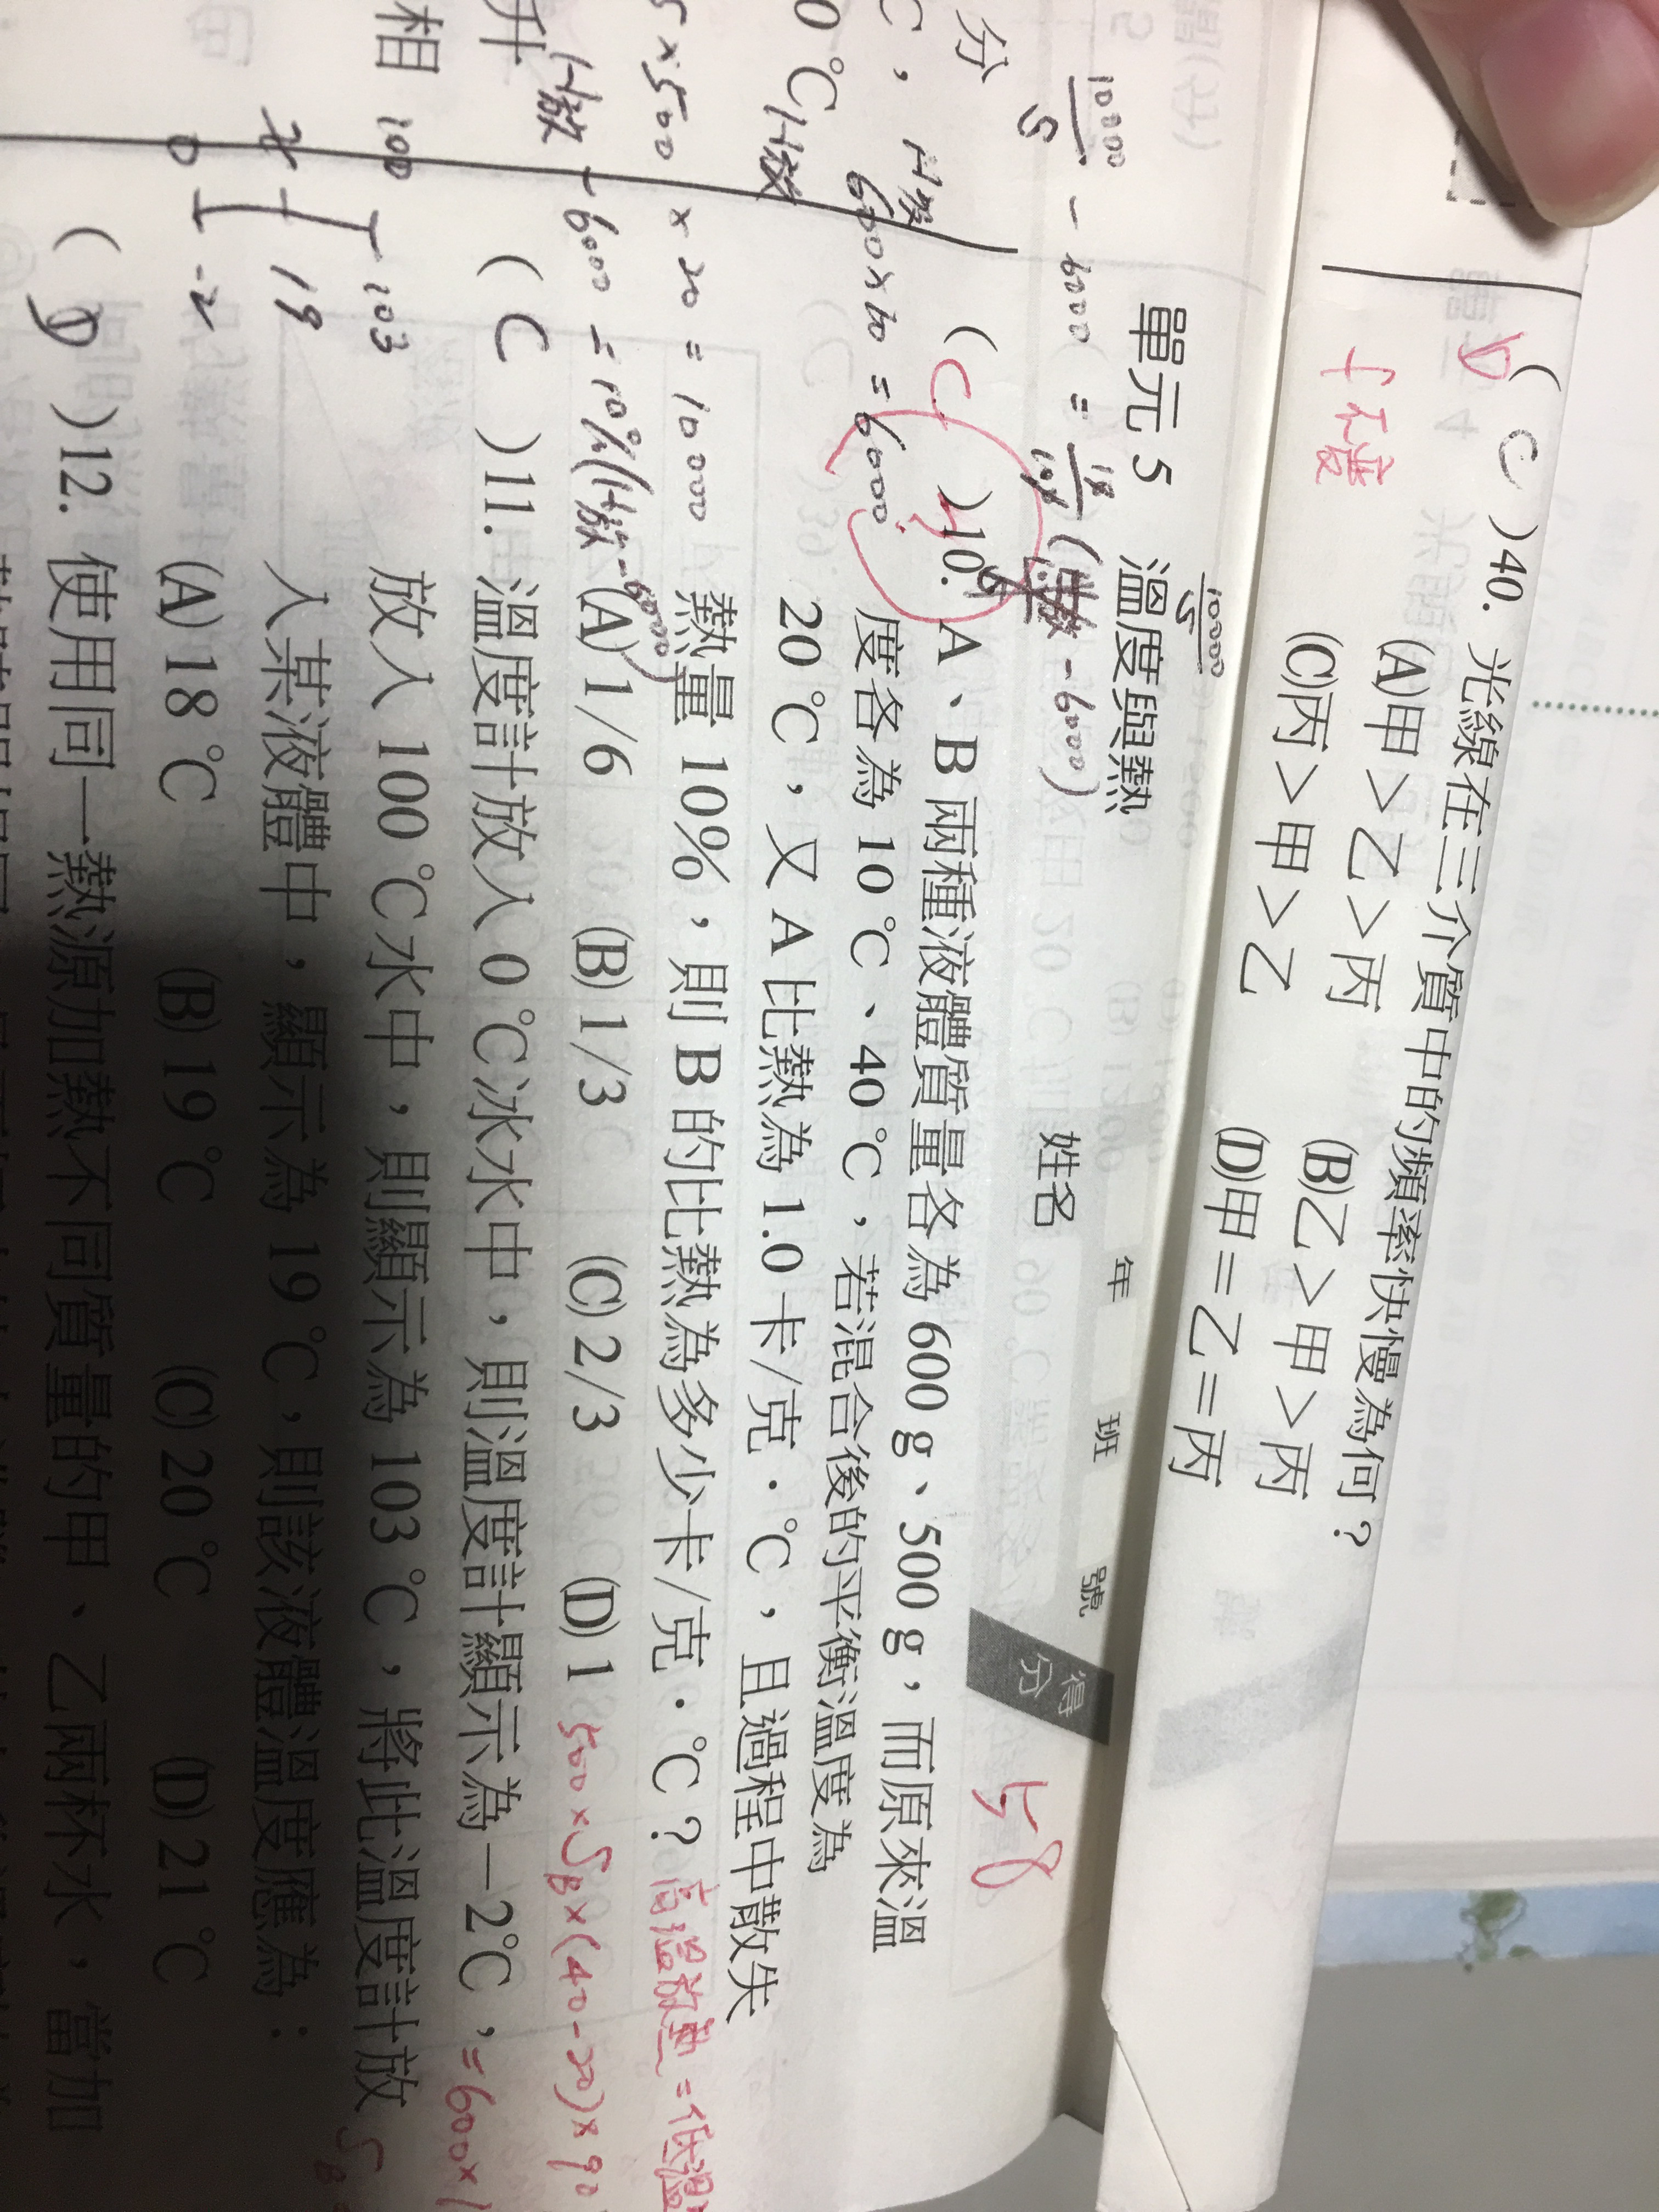 (C)40. 光線在三介質中的頻率快慢為何？
(A)甲＞乙＞丙 (B)乙＞甲＞丙
(C)丙＞甲＞乙 (D)甲＝乙＝丙
D
f不變
單元 5 溫度與熱
年 班 號
姓名
得分
58
(C)10. A、B 兩種液體質量各為 600 g、500 g，而原來溫
度各為 10 ℃、40 ℃，若混合後的平衡溫度為
20 ℃，又 A 比熱為 1.0 卡/克．℃，且過程中散失
熱量 10%，則 B 的比熱為多少卡/克．℃？
(A) 1/6 (B) 1/3 (C) 2/3 (D) 1
高溫放熱=低溫
500×S_B×(40-20)×90
=600×1
(C)11. 溫度計放入 0 ℃冰水中，則溫度計顯示為－2℃，
放入 100 ℃水中，則顯示為 103 ℃，將此溫度計放
入某液體中，顯示為 19 ℃，則該液體溫度應為：
(A) 18 ℃ (B) 19 ℃ (C) 20 ℃ (D) 21 ℃
(D)12. 使用同一熱源加熱不同質量的甲、乙兩杯水，當加
600×10 = 6000
5×500×20 = 10000
100 103
x 19
0 -2
分
升
相